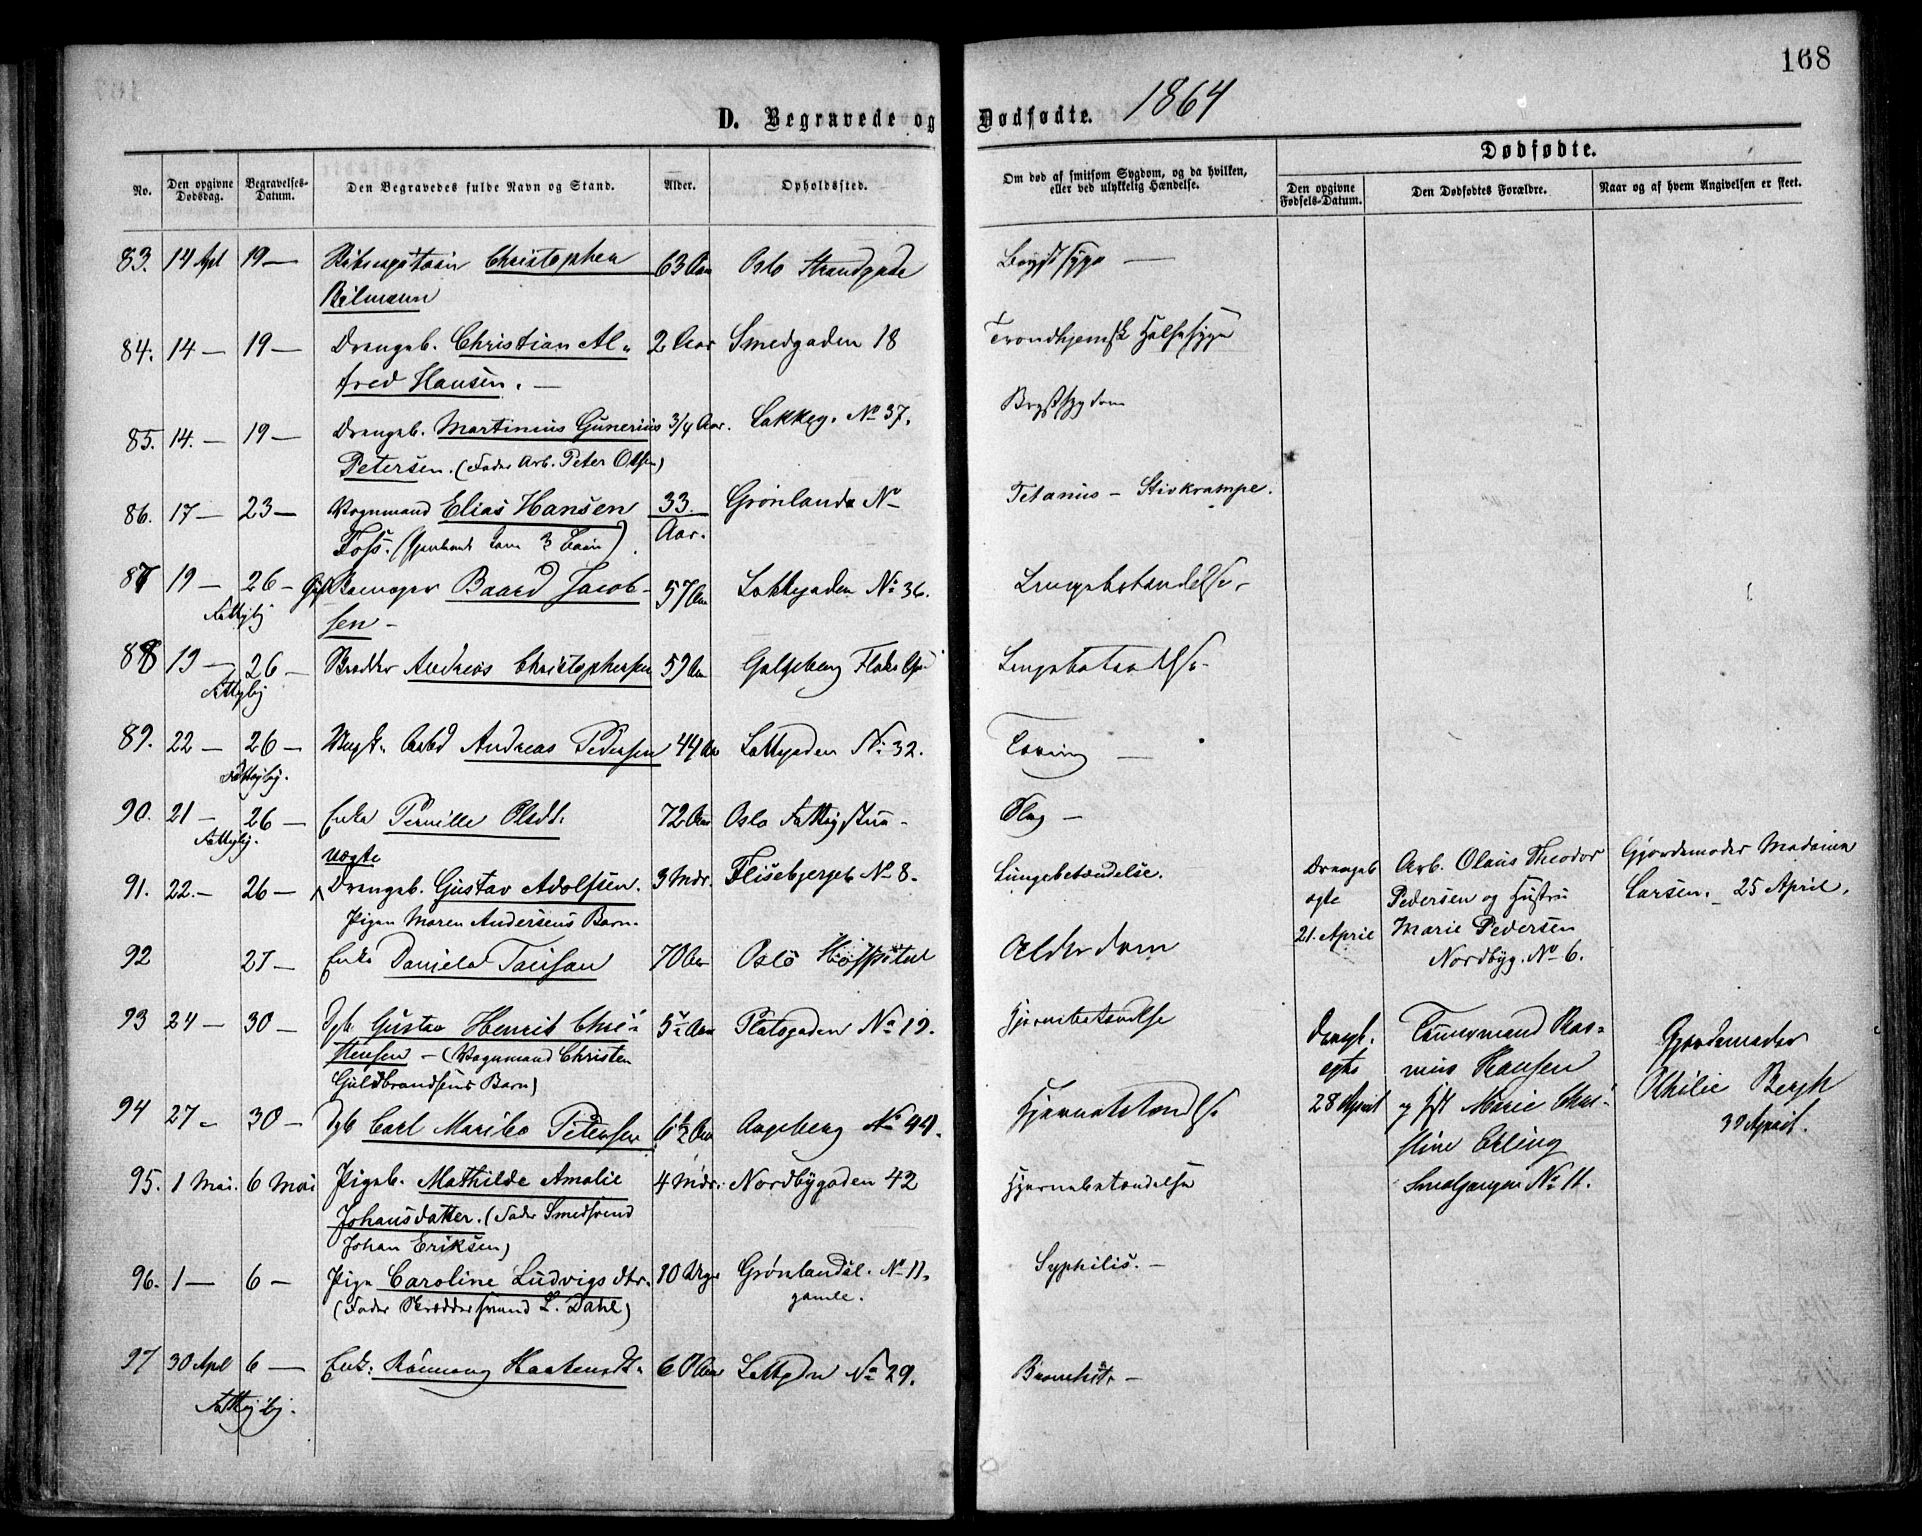 168
D. Begravede og Dødfødte. 1864
No.
Den opgivne Dødsdag.
Begravelses-Datum.
Den Begravedes fulde Navn og Stand.
Alder.
Opholdssted.
Om død af smitsom Sygdom, og da hvilken, eller ved ulykkelig Hændelse.
Dødfødte.
Den opgivne Fødsels-Datum.
Den Dødfødtes Forældre.
Naar og af hvem Angivelsen er skeet.
83. 14 Apl 19 — Christopher 63 Aar Oslo Strandgade Brystsyge —
84. 14 — 19 — Drengeb. Christian Al- 2 Aar Smedgaden 18 Trondhjemsk Halssyge
fred Hansen. —
85. 14. — 19 — Drengeb. Martinius Gunerius 3/4 Aar. Lakkeg. No 37. Brystsygdom
Petersen. (Fader Arb. Peter Olsen)
86. 17 — 23 — Vognmand Elias Hansen 33 Aar. Grønland No Tetanus — Stivkrampe.
Foss.
87 19 — 26 — Baard Jacob- 57 Aar Lakkegaden No 36. Lungebetændelse.
Fattiglig
sen —
88 19 — 26 — Andreas Christophersen 59 Aar Galgeberg Lungebetændelse
Fattiglig
89. 22 — 26 — Andreas Pedersen 44 Aar Lakkegaden No 32. Tæring —
Fattiglig.
90. 21 — 26 — Enke Pernille Olsdt. 72 Aar Oslo Slag —
Fattiglig.
uægte
91. 22. — 26 — Drengeb. Gustav Adolfsen. 3 Mdr. Flisebjerget No 8. Lungebetændelse.
Pigen Maren Andersens Barn.
Drengeb ægte 21. April
Arb. Olaus Theodor
Pedersen og Hustru
Marie Pedersen
Nordbyg. No 6.
Gjordemoder Madame
Larsen. — 25 April.
92 27 — Enke Daniela 70 Aar Oslo Hospital Alderdom
93 24 — 30 — Dgb. Gustav Henrik Chri- Aar Platsgaden No 19. Hjernebetændelse
stensen — (Vognmand Christen
Guldbrandsens Barn)
Drengb. ægte 28 April
Tømmermand Ras-
mus Hansen
og Marie Chri-
stine Erling
Smalgangen No 11.
Gjordemoder
Bergh
30 April.
94 27 — 30 — Dgb Carl Maribo Petersen 6 1/2 Aar Aageberg No 44. Hjernebetændelse
95. 1 Mai. 6 Mai Pigeb. Mathilde Amalie 4 Mdr. Nordbygaden 42 Hjernebetændelse
Johansdatter. (Fader Smedsvend
Johan Eriksen)
96. 1 — 6 — Pige Caroline Ludvigsdtr. 10 Uger Grønlandsl. No 11. Syphilis. —
gamle.
(Fader Skræddersvend L. Dahl)
97 30 Apl 6 — Enke: 60 Aar No 29. —
Fattiglig.